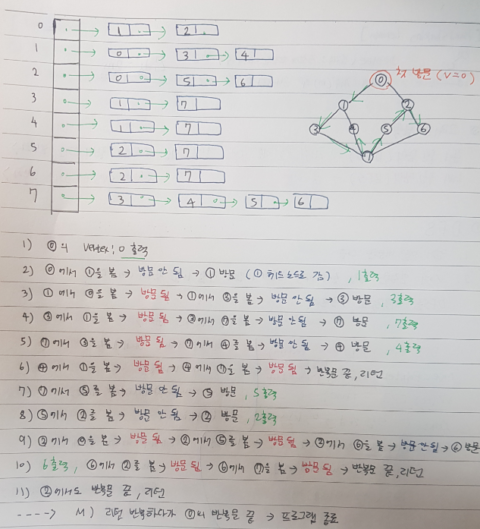 0 1 2
1 0 3 4
2 0 5 6
3 1 7
4 1 7
5 2 7
6 2 7
7 3 4 5 6
첫 방문 (V=0)
0
1 2
3 4 5 6
7
1) ⓪의 Vertex; 0 출력
2) ⓪에서 ①을 봄 → 방문 안 됨 → ① 방문 (① 헤드노드로 감), 1출력
3) ①에서 ⓪을 봄 → 방문됨 → ①에서 ③을 봄 → 방문 안 됨 → ③ 방문, 3출력
4) ③에서 ①을 봄 → 방문됨 → ③에서 ⑦을 봄 → 방문 안 됨 → ⑦ 방문, 7출력
5) ⑦에서 ③을 봄 → 방문됨 → ⑦에서 ④를 봄 → 방문 안 됨 → ④ 방문, 4출력
6) ④에서 ①을 봄 → 방문됨 → ④에서 ⑦을 봄 → 방문됨 → 반복문 끝, 리턴
7) ⑦에서 ⑤를 봄 → 방문 안 됨 → ⑤ 방문, 5출력
8) ⑤에서 ②를 봄 → 방문 안 됨 → ② 방문, 2출력
9) ②에서 ⓪을 봄 → 방문됨 → ②에서 ⑤를 봄 → 방문됨 → ②에서 ⑥을 봄 → 방문 안 됨 → ⑥ 방문
10) 6출력, ⑥에서 ②를 봄 → 방문됨 → ⑥에서 ⑦을 봄 → 방문됨 → 반복문 끝, 리턴
11) ②에서도 반복문 끝, 리턴
----> M) 리턴 반복하다가 ⓪의 반복문 끝 → 프로그램 종료